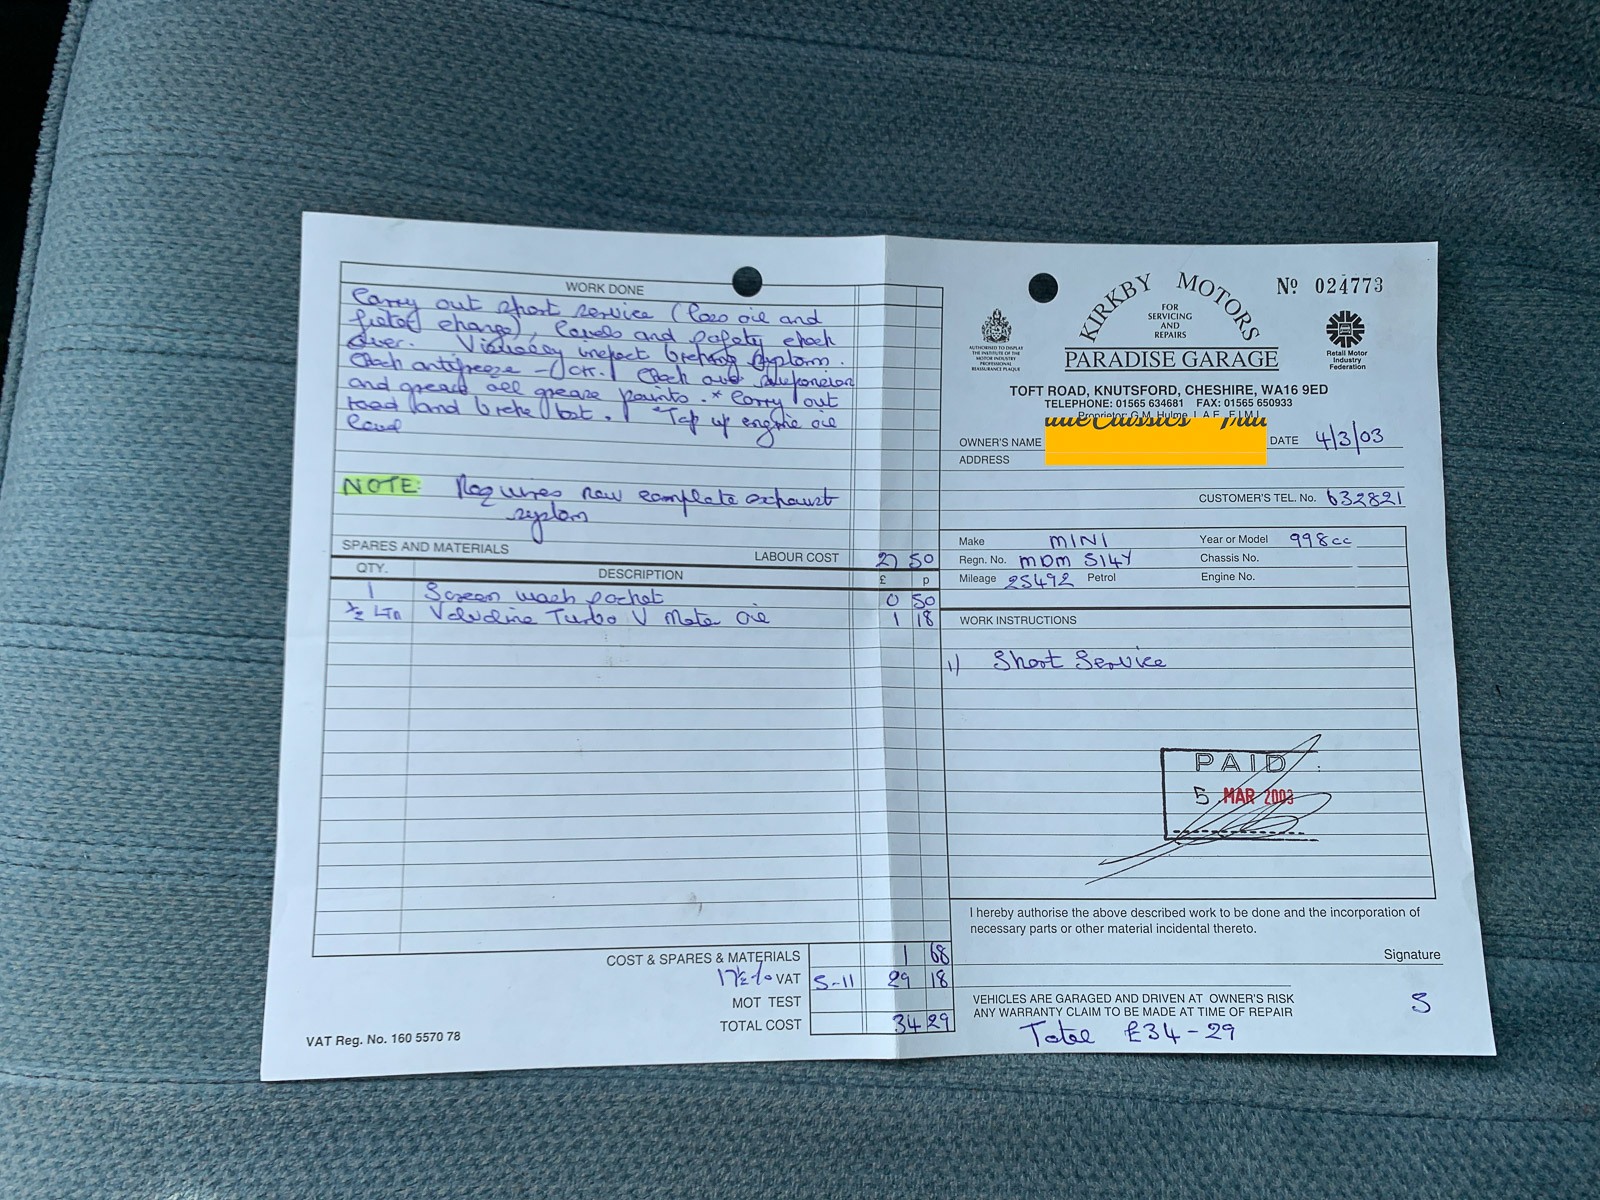 WORK DONE
Carry out short service (less oil and
filter change), levels and safety check
over. Visually inspect braking system.
Check antifreeze - OK. Check over suspension
and grease all grease points. * Carry out
road and brake test. * Top up engine oil
level
NOTE: Requires new complete exhaust
system
SPARES AND MATERIALS
LABOUR COST 27 50
QTY. DESCRIPTION £ p
1 Screen wash sachet 0 50
½ Ltr Valvoline Turbo V Motor Oil 1 18
COST & SPARES & MATERIALS 1 68
17½% VAT 5-11 29 18
MOT TEST
TOTAL COST 34 29
VAT Reg. No. 160 5570 78
KIRKBY MOTORS
Nº 024773
FOR
SERVICING
AND
REPAIRS
PARADISE GARAGE
AUTHORISED TO DISPLAY
THE INSTITUTE OF THE
MOTOR INDUSTRY
PROFESSIONAL
REASSURANCE PLAQUE
Retail Motor
Industry
Federation
TOFT ROAD, KNUTSFORD, CHESHIRE, WA16 9ED
TELEPHONE: 01565 634681 FAX: 01565 650933
Proprietor: G.M. Hulme, L.A.E., F.I.M.I.
OWNER'S NAME DATE 4/3/03
ADDRESS
CUSTOMER'S TEL. No. 632821
Make MINI Year or Model 998cc
Regn. No. MDM 514Y Chassis No.
Mileage 25492 Petrol Engine No.
WORK INSTRUCTIONS
1) Short Service
PAID
5 MAR 2003
I hereby authorise the above described work to be done and the incorporation of
necessary parts or other material incidental thereto.
Signature
VEHICLES ARE GARAGED AND DRIVEN AT OWNER'S RISK
ANY WARRANTY CLAIM TO BE MADE AT TIME OF REPAIR
S
Total £34-29